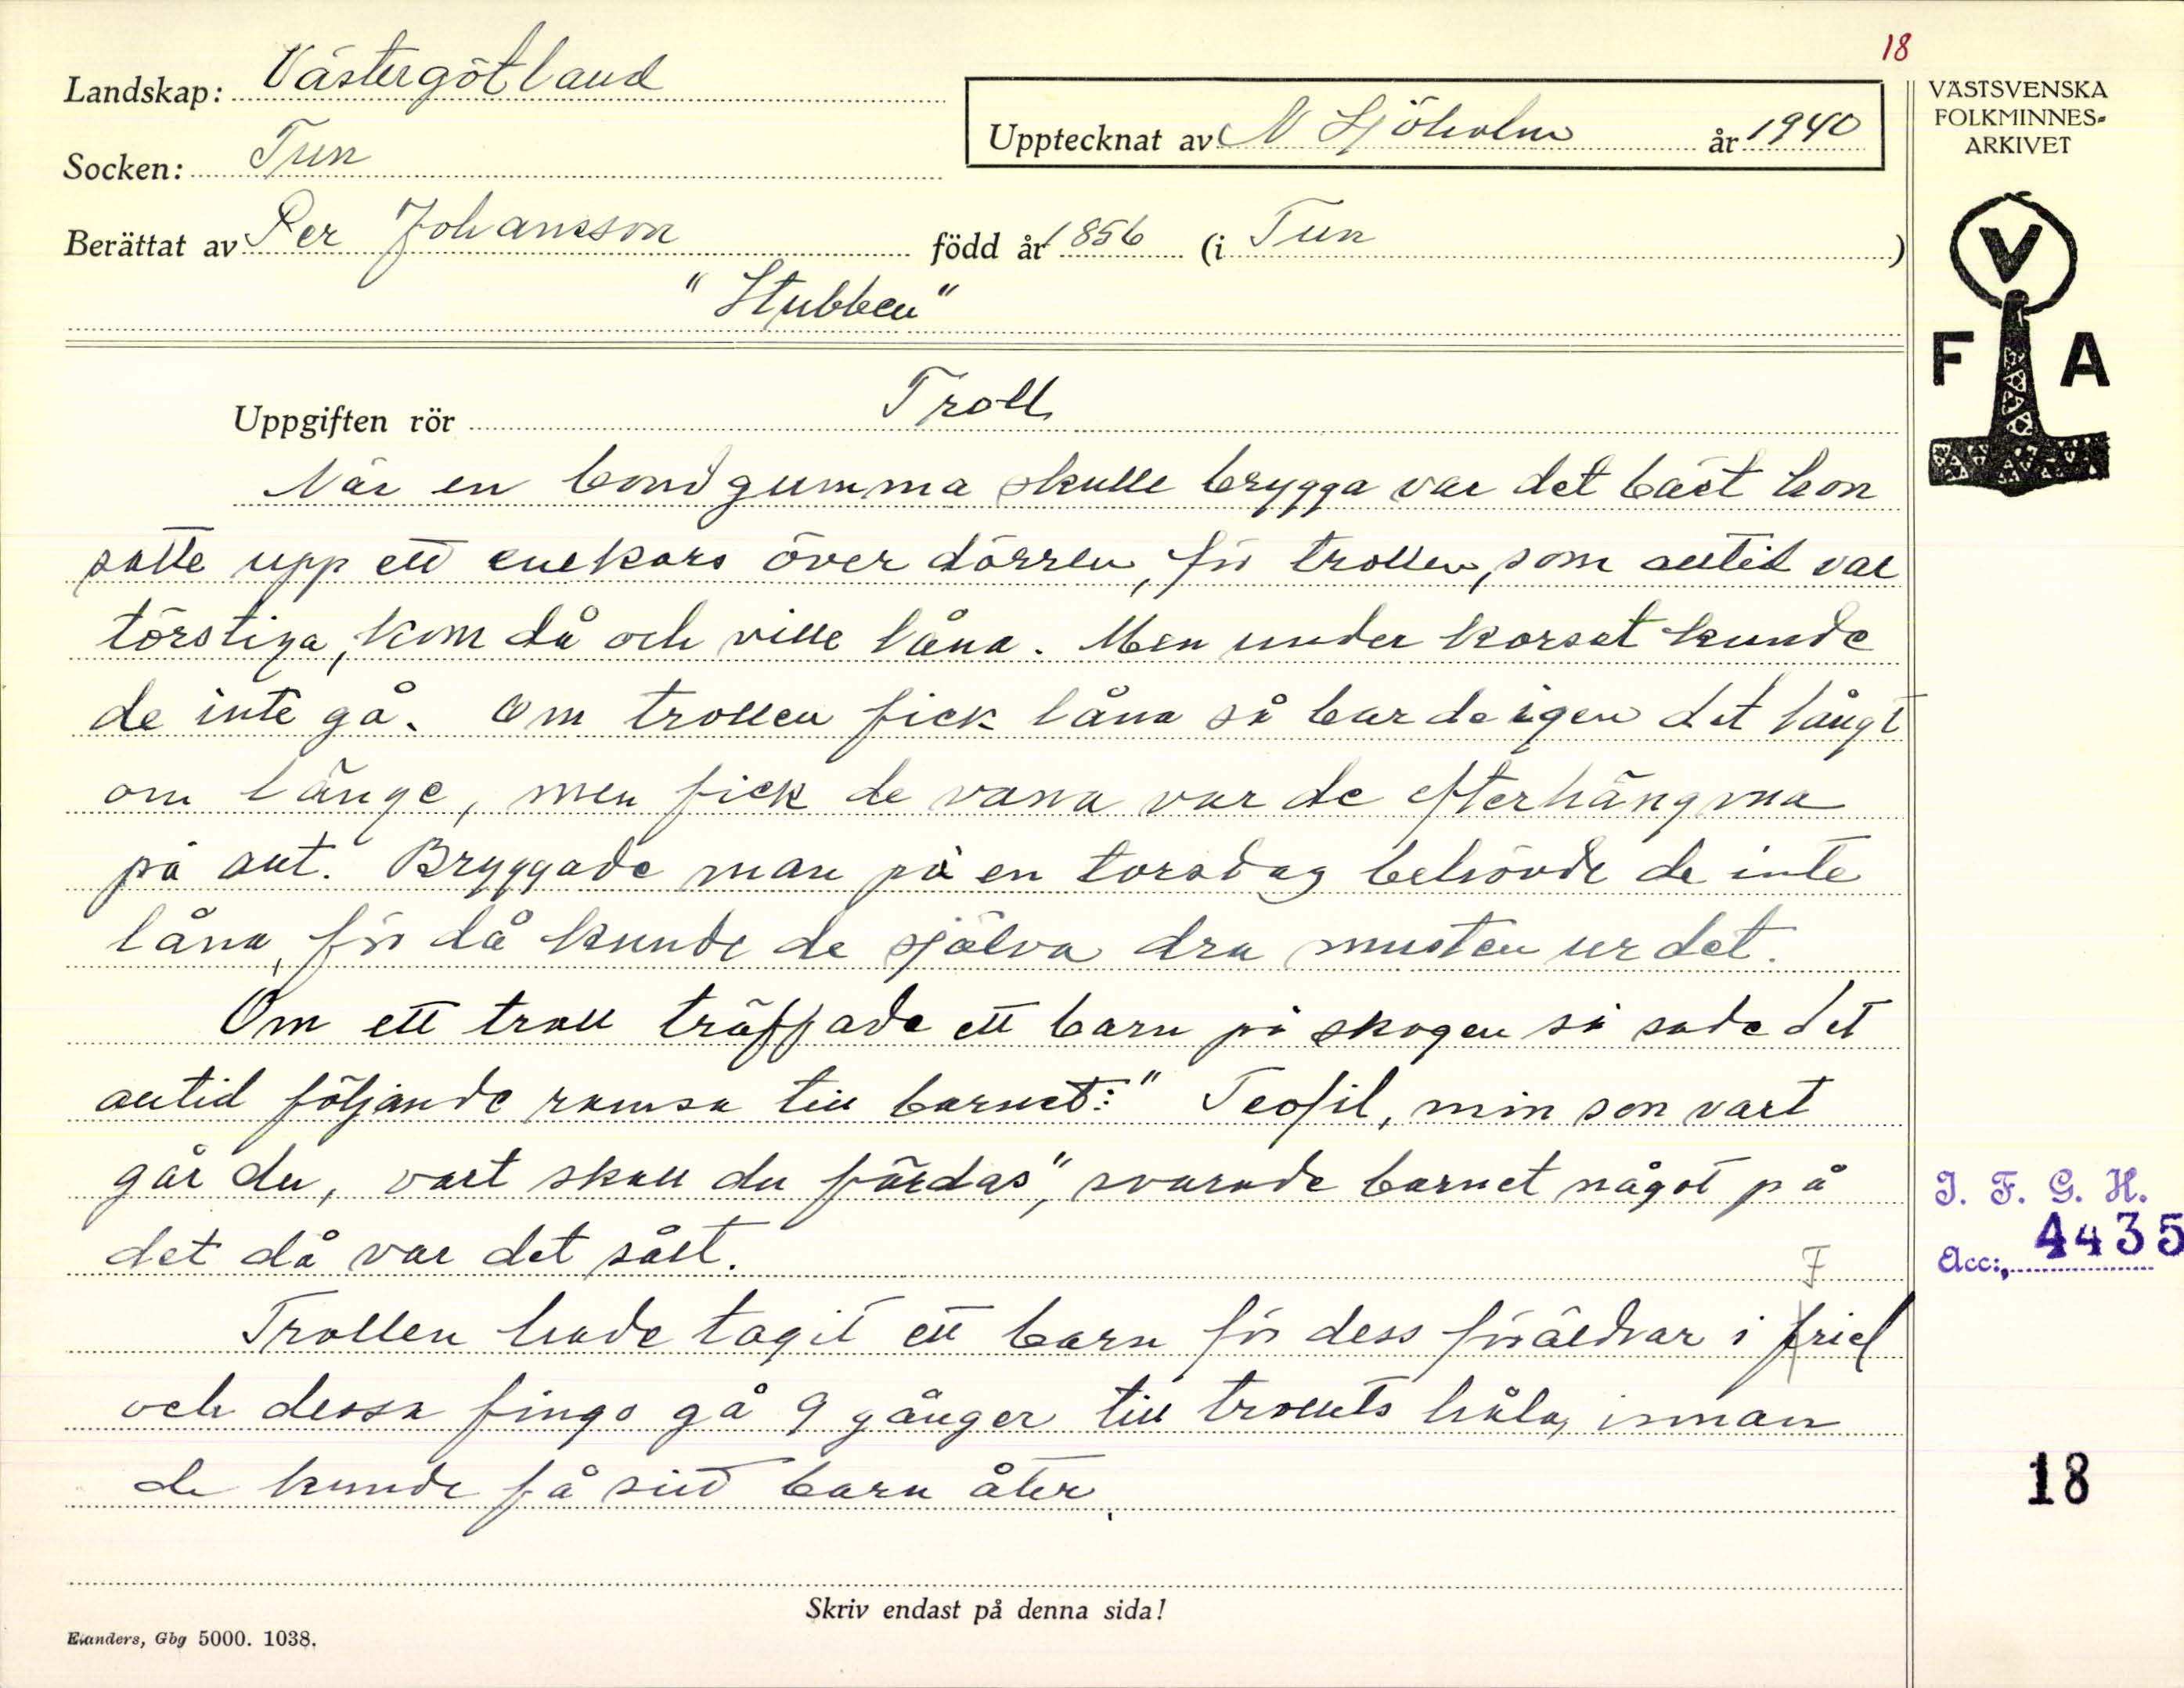 18
Landskap: Västergötland
Upptecknat av N Sjöholm år 1940
VÄSTSVENSKA
FOLKMINNES-
ARKIVET
Socken: Tun
Berättat av Per Johansson född år 1856 (i Tun)
"Stubben"
V
F A
Uppgiften rör Troll
När en bondgumma skulle brygga var det bäst hon
satte upp ett enekors över dörren, för trollen, som alltid var
törstiga, kom då och ville låna. Men under korset kunde
de inte gå. Om trollen fick låna så bar de igen det långt
om länge, men fick de vana var de efterhängsna
på allt. Bryggade man på en torsdag behövde de inte
låna, för då kunde de själva dra musten ur det.
Om ett troll träffade ett barn på skogen så sade det
alltid följande ramsa till barnet: "Teofil, min son vart
går du, vart skall du färdas", svarade barnet något på
det då var det sålt.
Trollen hade tagit ett barn för dess föräldrar i Friel
och dessa fingo gå 9 gånger till trollets håla, innan
de kunde få sitt barn åter.
I. F. G. H.
Acc:, 4435
18
Skriv endast på denna sida!
Elanders, Gbg 5000. 1038.